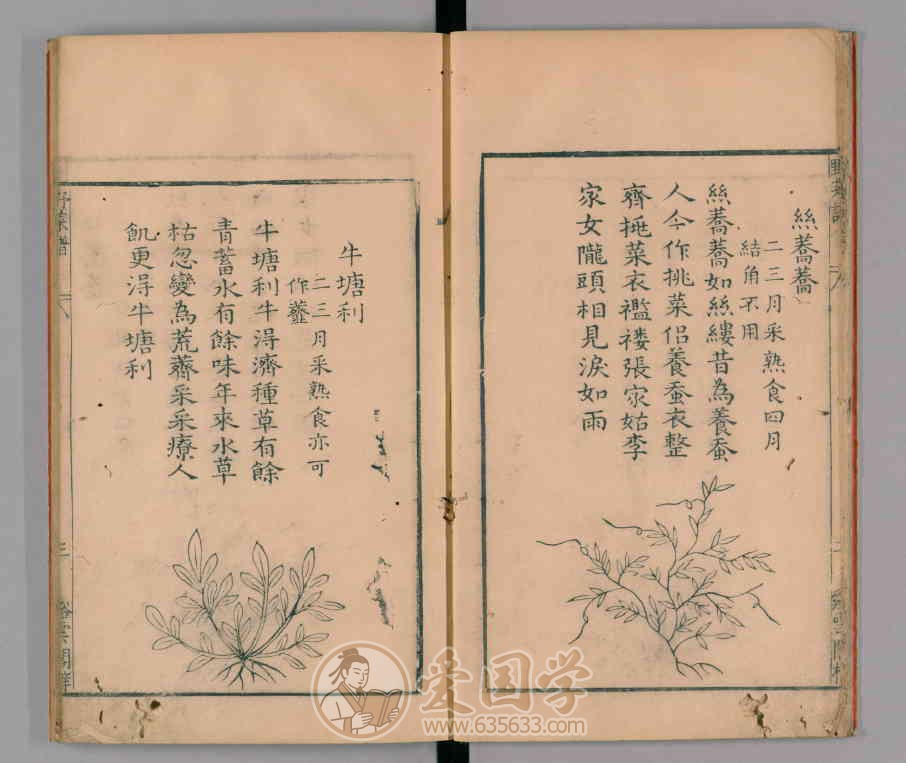 絲蕎蕎
二三月采熟食四月
結角不用
絲蕎蕎如絲縷昔為養蚕
人今作挑菜侣養蚕衣整
齊挑菜衣襤褸張家姑李
家女隴頭相見淚如雨
牛塘利
二三月采熟食亦可
作虀
牛塘利牛淂濟種草有餘
青蓄水有餘味年來水草
枯忽變為荒薺采采療人
飢更淂牛塘利
野菜譜
三
爱国学
www.635633.com